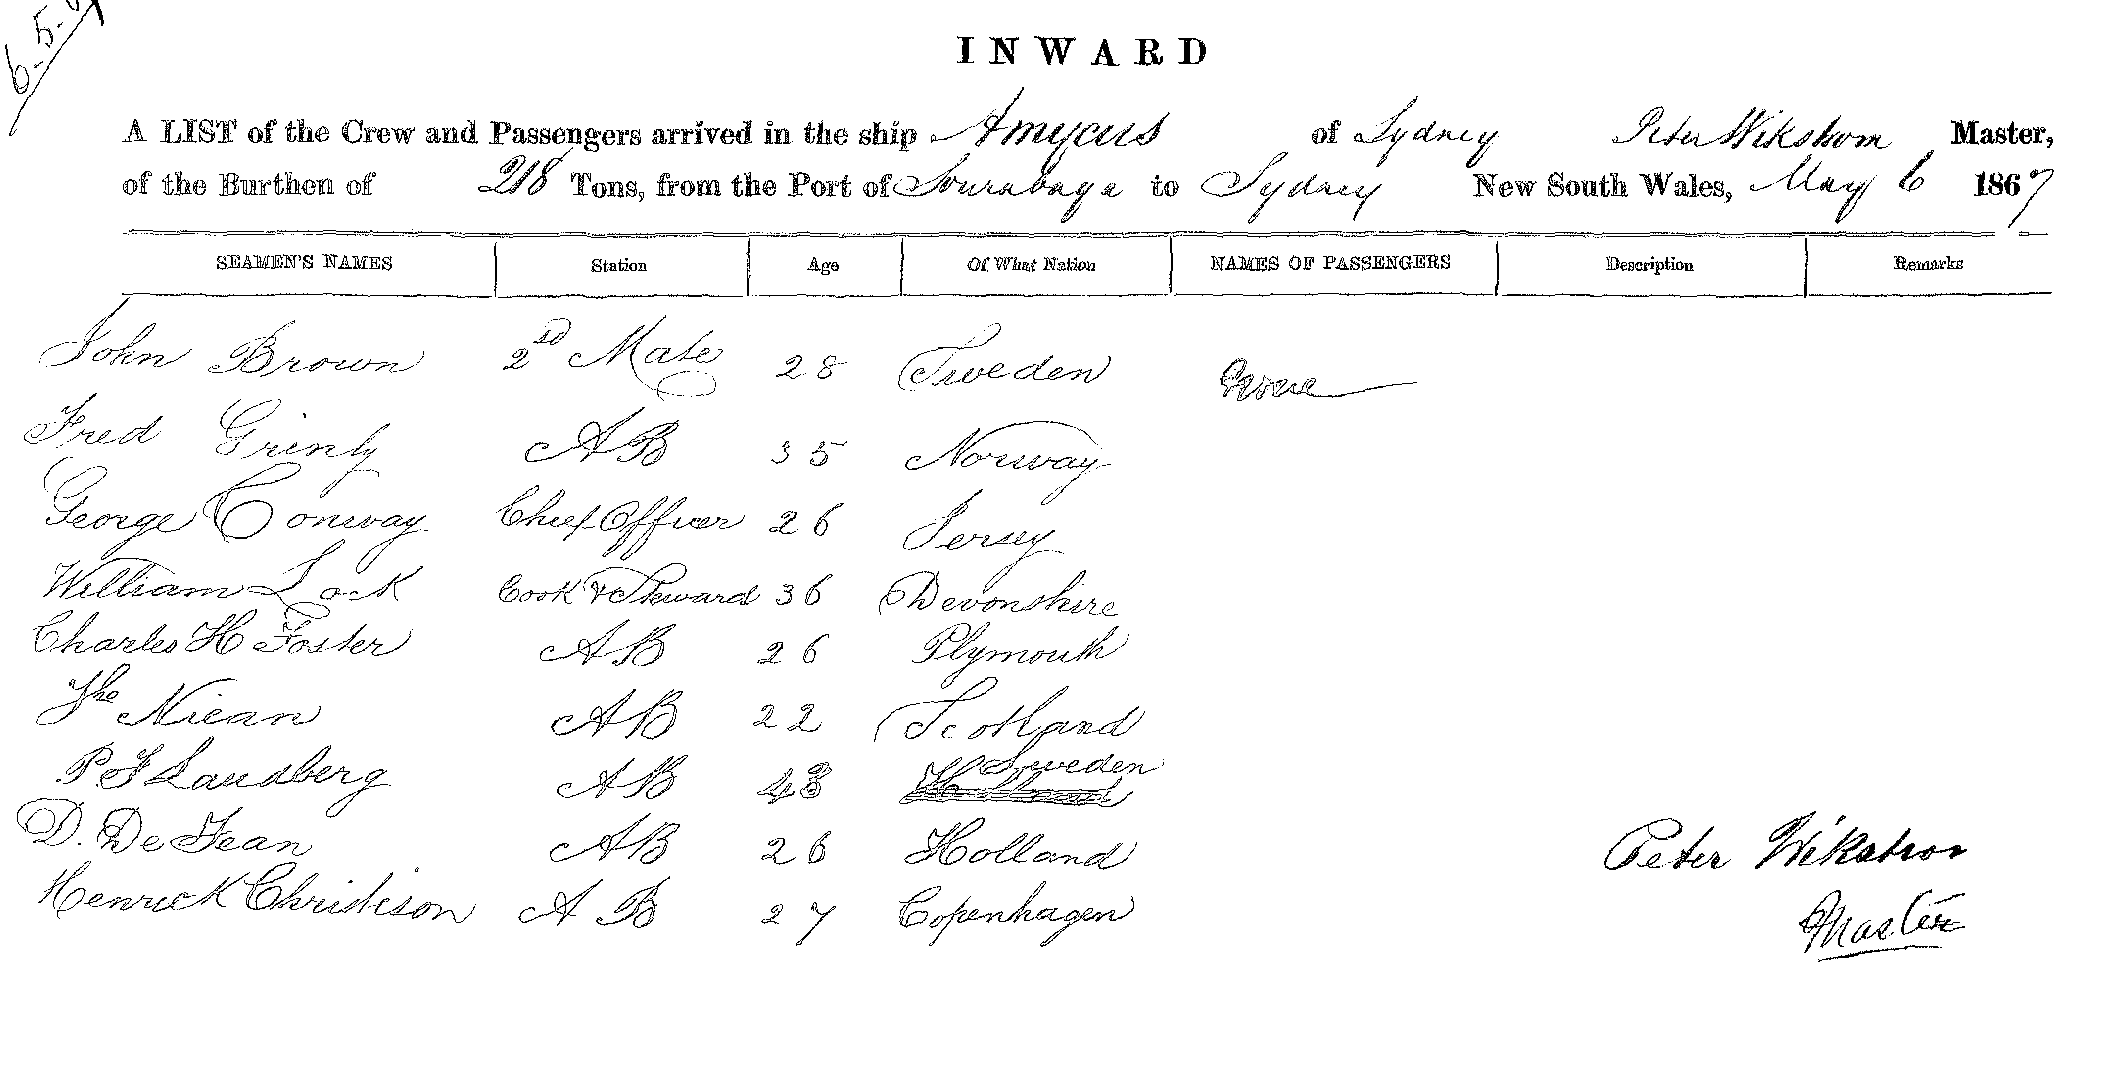 6-5-
INWARD
A LIST of the Crew and Passengers arrived in the ship Amycus of Sydney Peter Wikstrom Master,
of the Burthen of 218 Tons, from the Port of Sourabaya to Sydney New South Wales, May 6 1867
SEAMEN'S NAMES Station Age Of What Nation NAMES OF PASSENGERS Description Remarks
John Brown 2nd Mate 28 Sweden None
Fred Grinly AB 35 Norway
George Conway Chief Officer 26 Jersey
William Lock Cook & Steward 36 Devonshire
Charles H Foster AB 26 Plymouth
Niean AB 22 Scotland
P F Landberg AB 48 Sweden
D. De Jean AB 26 Holland
Henrick Christison AB 27 Copenhagen
Peter Wikstrom
Master